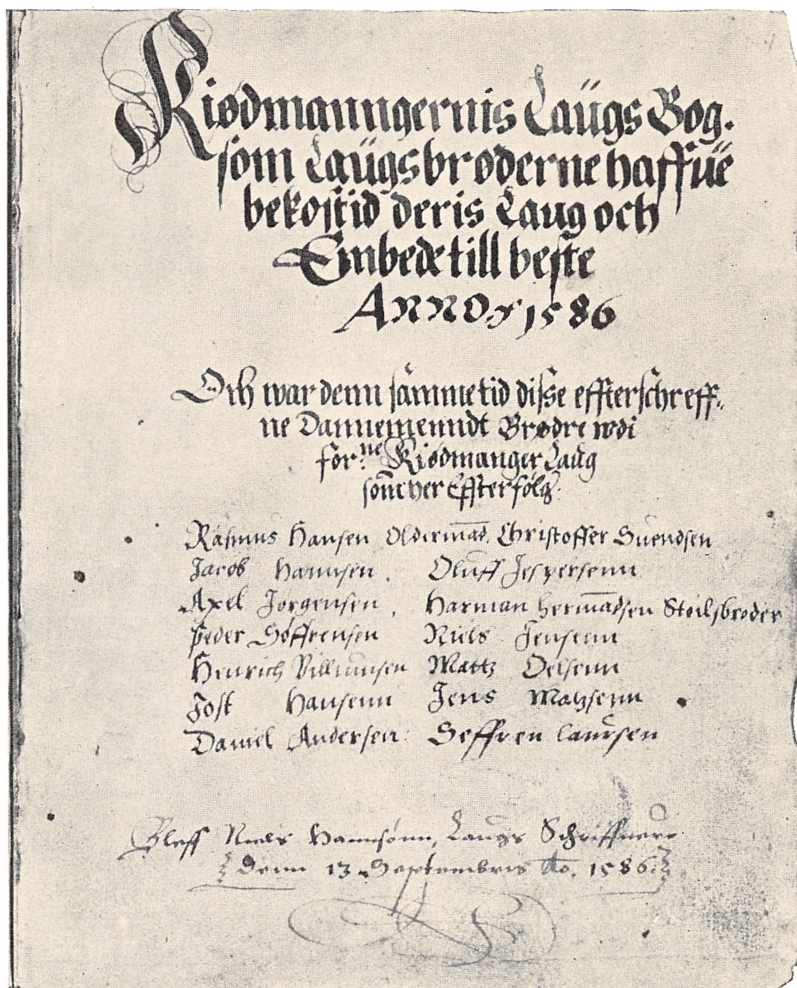 Kiødmanngernis Laügs Bog.
som Laügsbrøderne haffùe
bekostid deris Laug och
Embede till beste
ANNO 1586
Och war denn sammetid disse effterschreff-
ne Dannemenndt Brødre wdi
forne Kiødmanger Laug
som her Effterfølg
Rasmus Hansen Oldermad. Christoffer Suendsen
Jacob Hannsen. Oluff Jespersenn
Axel Jorgensen. Harman Hermadsen Stoilsbroder
Peder Søffrensen Niels Jensenn
Henrich Villumsen Mattz Oelsenn
Jost Hansenn Jens Matzsenn
Daniel Andersen: Søffren Laursen
Bleff Niels Hannsønn, Laugs Schriffuere
Denn 13 Septembris Ao. 1586.